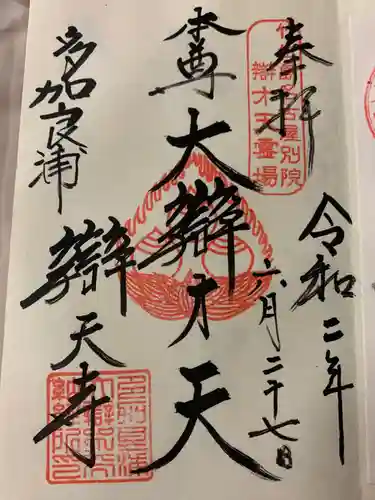 奉拝
令和二年
六月二十七日
本尊
大辯才天
多加良浦
辯天寺
名古屋別院
辯才天霊場